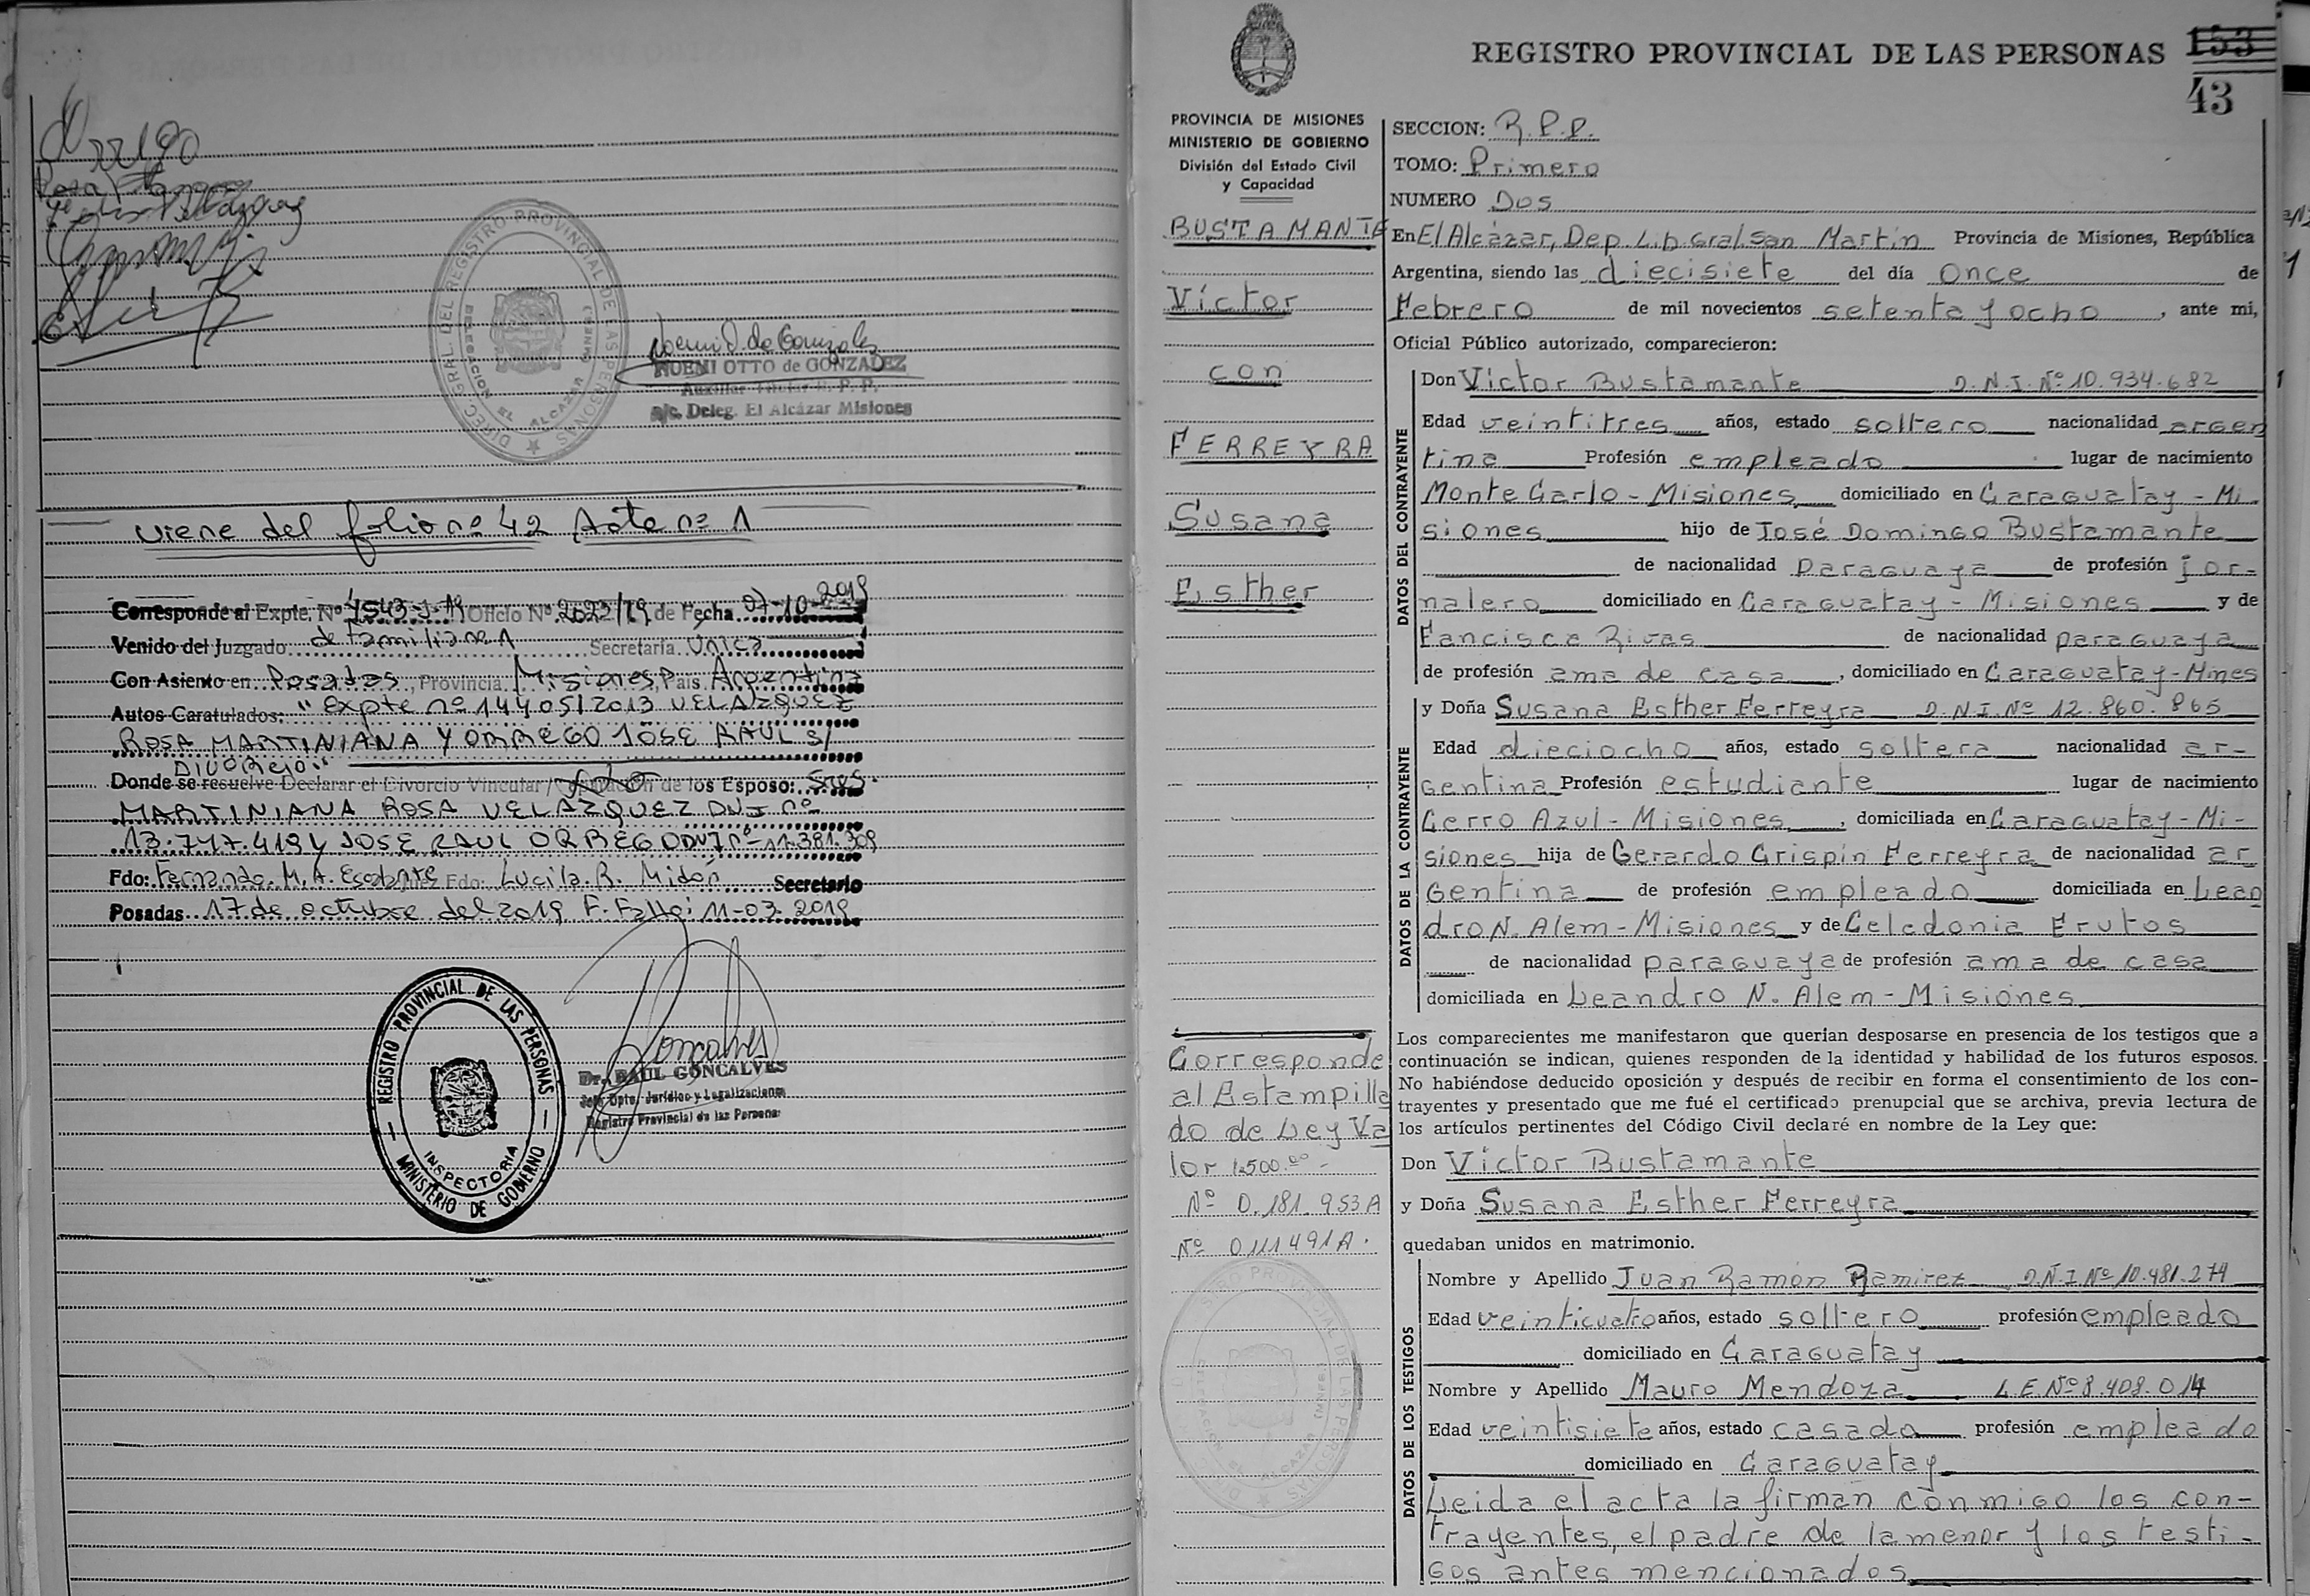 Orrego
viene del folio nº 42 Acta nº 1
DIREC. GRAL. DEL REGISTRO PROVINCIAL DE LAS PERSONAS
DELEGACION EL ALCAZAR (MNES)
Noemi O. de González
NOEMI OTTO de GONZALEZ
Auxiliar Titular R. P. P.
a/c. Deleg. El Alcázar Misiones
Corresponde al Expte. Nº 4543-J-19 Oficio Nº 2623/19 de Fecha 07-10-2019
Venido del Juzgado: de Familia nº 1 Secretaría Unica
Con Asiento en Posadas, Provincia Misiones, País Argentina
Autos Caratulados: "Expte nº 1440512013 VELAZQUEZ
ROSA MARTINIANA Y ORREGO JOSE RAUL s/
DIVORCIO"
Donde se resuelve Declarar el Divorcio Vincular / de los Esposo: Sres.
MARTINIANA ROSA VELAZQUEZ DNI nº
13.747.419 y JOSE RAUL ORREGO DNI nº 11.381.309
Fdo: Fernando M. A. Escalante Juez Fdo: Lucila R. Midón Secretario
Posadas 17 de octubre del 2019 F. Fallo: 11-03-2019
REGISTRO PROVINCIAL DE LAS PERSONAS
INSPECTORIA
MINISTERIO DE GOBIERNO
Goncalves
Dr. RAUL GONCALVES
Jefe Dpto. Jurídico y Legalizaciones
Registro Provincial de las Personas
REGISTRO PROVINCIAL DE LAS PERSONAS
153
43
PROVINCIA DE MISIONES
MINISTERIO DE GOBIERNO
División del Estado Civil
y Capacidad
BUSTAMANTE
Víctor
con
FERREYRA
Susana
Esther
Corresponde
al Estampilla
do de Ley Va
lor 1.500.00 -
Nº 0.181.953A
Nº 0111491A.
SECCION: R.P.P.
TOMO: Primero
NUMERO Dos
En El Alcázar, Dep. Lib. Gral. San Martín Provincia de Misiones, República
Argentina, siendo las diecisiete del día once de
Febrero de mil novecientos setenta y ocho, ante mi,
Oficial Público autorizado, comparecieron:
DATOS DEL CONTRAYENTE
Don Víctor Bustamante D.N.I. Nº 10.934.682
Edad veintitres años, estado soltero nacionalidad argen
tina Profesión empleado lugar de nacimiento
Monte Carlo - Misiones domiciliado en Caraguatay - Mi
siones hijo de José Domingo Bustamante
de nacionalidad paraguaya de profesión jor-
nalero domiciliado en Caraguatay - Misiones y de
Fancisca Rivas de nacionalidad paraguaya
de profesión ama de casa, domiciliado en Caraguatay - Mnes
DATOS DE LA CONTRAYENTE
y Doña Susana Esther Ferreyra D.N.I. Nº 12.860.865
Edad dieciocho años, estado soltera nacionalidad ar-
gentina Profesión estudiante lugar de nacimiento
Cerro Azul - Misiones, domiciliada en Caraguatay - Mi-
siones hija de Gerardo Crispín Ferreyra de nacionalidad ar
gentina de profesión empleado domiciliada en Lean
dro N. Alem - Misiones y de Celedonia Frutos
de nacionalidad paraguaya de profesión ama de casa
domiciliada en Leandro N. Alem - Misiones
Los comparecientes me manifestaron que querían desposarse en presencia de los testigos que a
continuación se indican, quienes responden de la identidad y habilidad de los futuros esposos.
No habiéndose deducido oposición y después de recibir en forma el consentimiento de los con-
trayentes y presentado que me fué el certificado prenupcial que se archiva, previa lectura de
los artículos pertinentes del Código Civil declaré en nombre de la Ley que:
Don Víctor Bustamante
y Doña Susana Esther Ferreyra
quedaban unidos en matrimonio.
DATOS DE LOS TESTIGOS
Nombre y Apellido Juan Ramón Ramirez D.N.I Nº 10.481.274
Edad veinticuatro años, estado soltero profesión empleado
domiciliado en Caraguatay
Nombre y Apellido Mauro Mendoza L.E. Nº 8.408.014
Edad veintisiete años, estado casado profesión empleado
domiciliado en Caraguatay
Leida el acta la firman conmigo los con-
trayentes, el padre de la menor y los testi-
gos antes mencionados